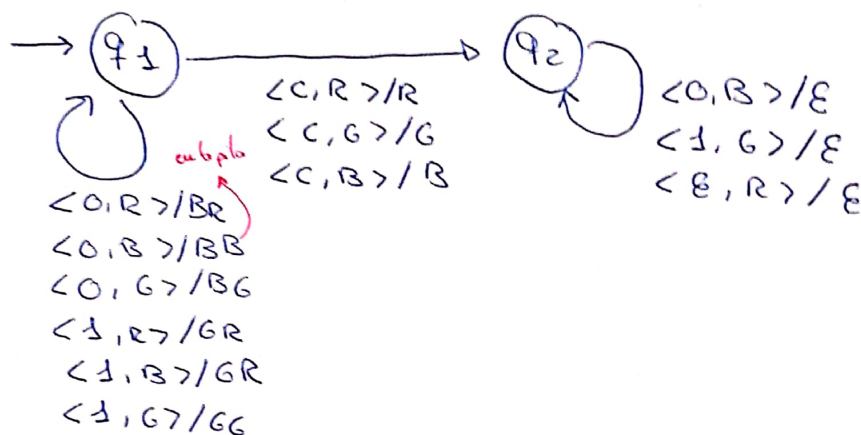 q1
q2
<C, R>/R
<C, G>/G
<C, B>/B
<0, B>/ε
<1, G>/ε
<ε, R>/ε
<0, R>/BR
<0, B>/BB
<0, G>/BG
<1, R>/GR
<1, B>/GR
<1, G>/GG